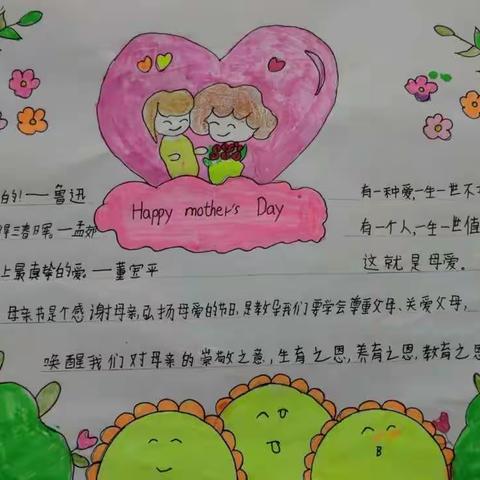 Happy mother's Day
的！——鲁迅
三春日晖。—孟郊
上最真挚的爱。—董宏平
有一种爱，一生一世不
有一个人，一生一世值
这就是母爱。
母亲节是个感谢母亲，弘扬母爱的节日，是教导我们要学会尊重父母、关爱父母，
唤醒我们对母亲的崇敬之意，生育之恩，养育之恩，教育之恩